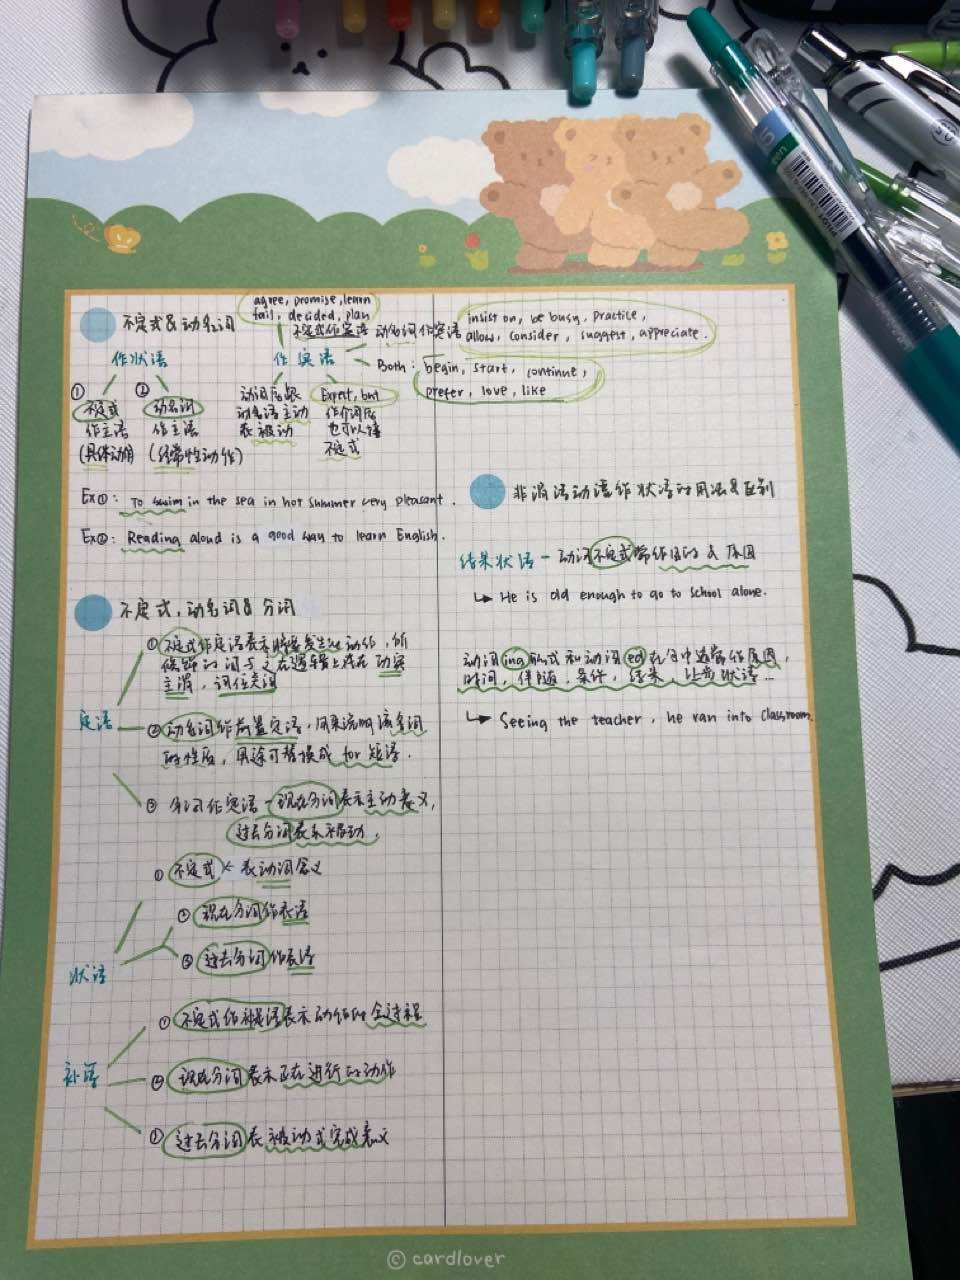 不定式&动名词
agree, promise, learn
fail, decided, plan
不定式作宾语 动名词作宾语
insist on, be busy, practice,
allow, consider, suggest, appreciate.
作状语
作宾语
Both: begin, start, continue,
prefer, love, like
① 不定式
作主语
(具体动作)
② 动名词
作主语
(经常性动作)
动词后跟
动名语主动
表被动
Expect, but
作介词后
也可以接
不定式
Ex①: To swim in the sea in hot summer very pleasant.
Ex②: Reading aloud is a good way to learn English.
不定式,动名词&分词
定语
① 不定式作定语表示将要发生的动作,所
修饰的词与之在逻辑上存在动宾
主谓,同位关词
② 动名词作前置定语,用来说明该名词
的性质,用途可替换成 for 短语.
③ 分词作定语-现在分词表示主动意义,
过去分词表示被动.
状语
① 不定式 表动词含义
② 现在分词作表语
③ 过去分词作表语
补语
① 不定式作补语表示动作的全过程
② 现在分词表示正在进行的动作
过去分词表被动式完成意义
非谓语动语作状语的用法&区别
结果状语-动词不定式常作目的&原因
↳ He is old enough to go to school alone.
动词ing形式和动词ed在句中通常作原因,
时间,伴随.条件,结果.让步状语...
↳ Seeing the teacher, he ran into classroom.
© cardlover